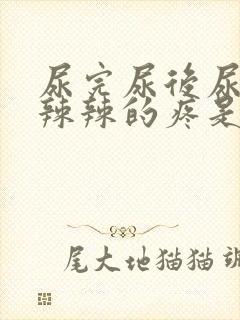 尿完尿后尿
辣辣的疼是
尾大地猫猫